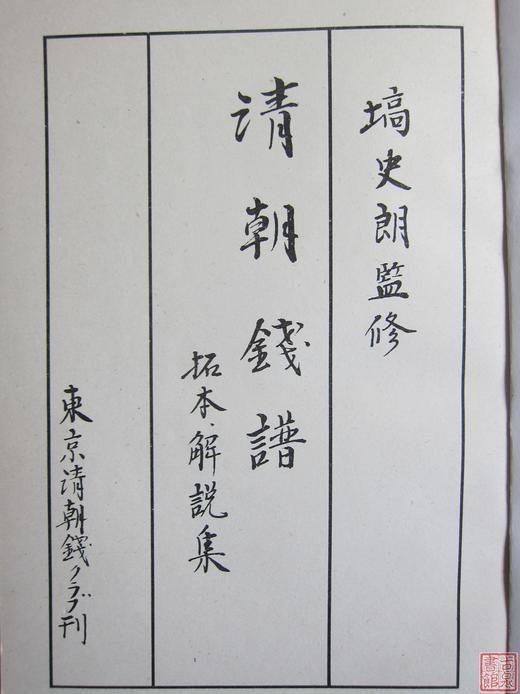 塙史朗監修
清朝錢譜
拓本、解説集
東京清朝錢クラブ刊
古泉書館